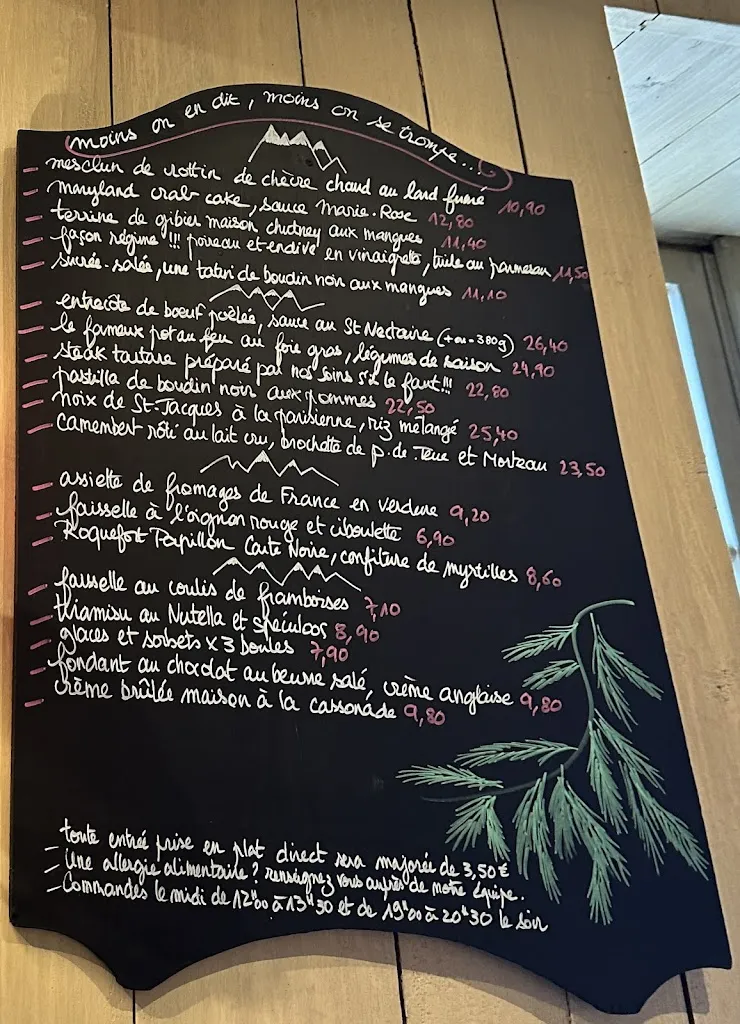 moins on en dit, moins on se trompe...
- mesclun de crottin de chèvre chaud au lard fumé 10,90
- maryland crab cake, sauce Marie-Rose 12,80
- terrine de gibier maison chutney aux mangues 11,40
- façon régime !!! poireau et endive en vinaigrette, tuile au parmesan 11,50
- sucrée-salée, une tatin de boudin noir aux mangues 11,10
- entrecôte de boeuf poêlée, sauce au St Nectaire (+ou-380g) 26,40
- le fameux pot au feu au foie gras, légumes de saison 24,90
- steak tartare préparé par nos soins s'il le faut!!! 22,80
- pastilla de boudin noir aux pommes 22,50
- noix de St-Jacques à la parisienne, riz mélangé 25,40
- camembert rôti au lait cru, brochette de p.de.Terre et Morteau 23,50
- assiette de fromages de France en verdure 9,20
- faisselle à l'oignon rouge et ciboulette 6,90
- Roquefort Papillon Carte Noire, confiture de myrtilles 8,60
- faisselle au coulis de framboises 7,10
- tiramisu au Nutella et spéculoos 8,90
- glaces et sorbets x3 boules 7,90
- fondant au chocolat au beurre salé, crème anglaise 9,80
- crème brûlée maison à la cassonade 9,80
- toute entrée prise en plat direct sera majorée de 3,50€
- Une allergie alimentaire? renseignez vous auprès de notre équipe.
- Commandes le midi de 12h00 à 13H30 et de 19h00 à 20H30 le soir